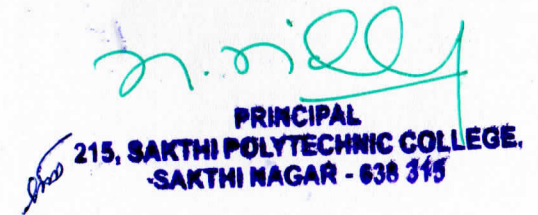 PRINCIPAL
215, SAKTHI POLYTECHNIC COLLEGE,
SAKTHI NAGAR - 638 315